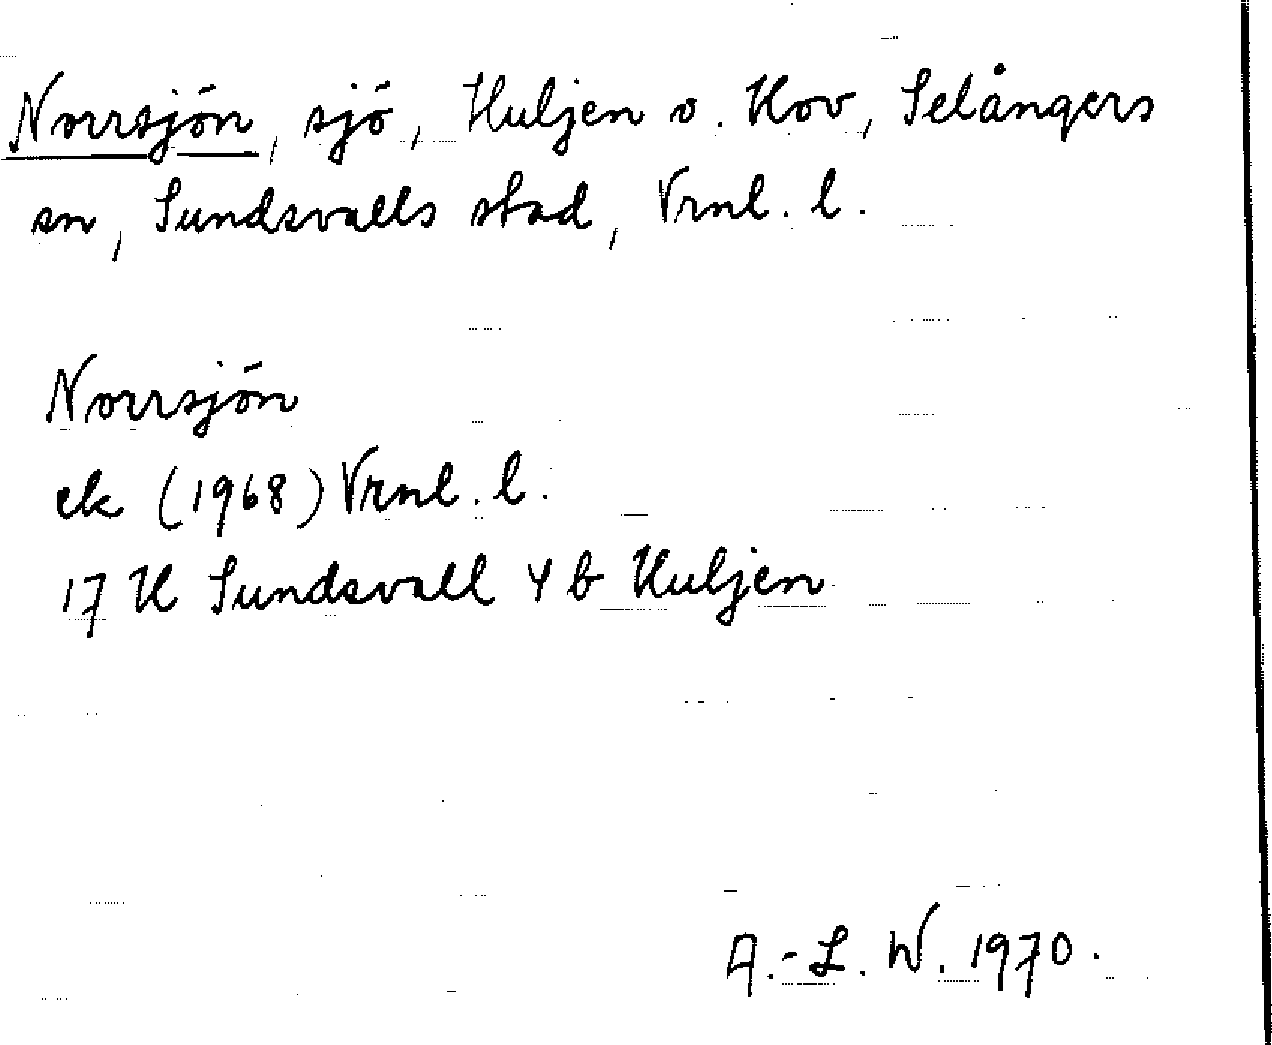 Norrsjön, sjö, Huljen o. Hov, Selångers
sn, Sundsvalls stad, Vrnl. l.
Norrsjön
ek (1968) Vrnl. l.
17 H Sundsvall 4 b Huljen
A.-L. W. 1970.